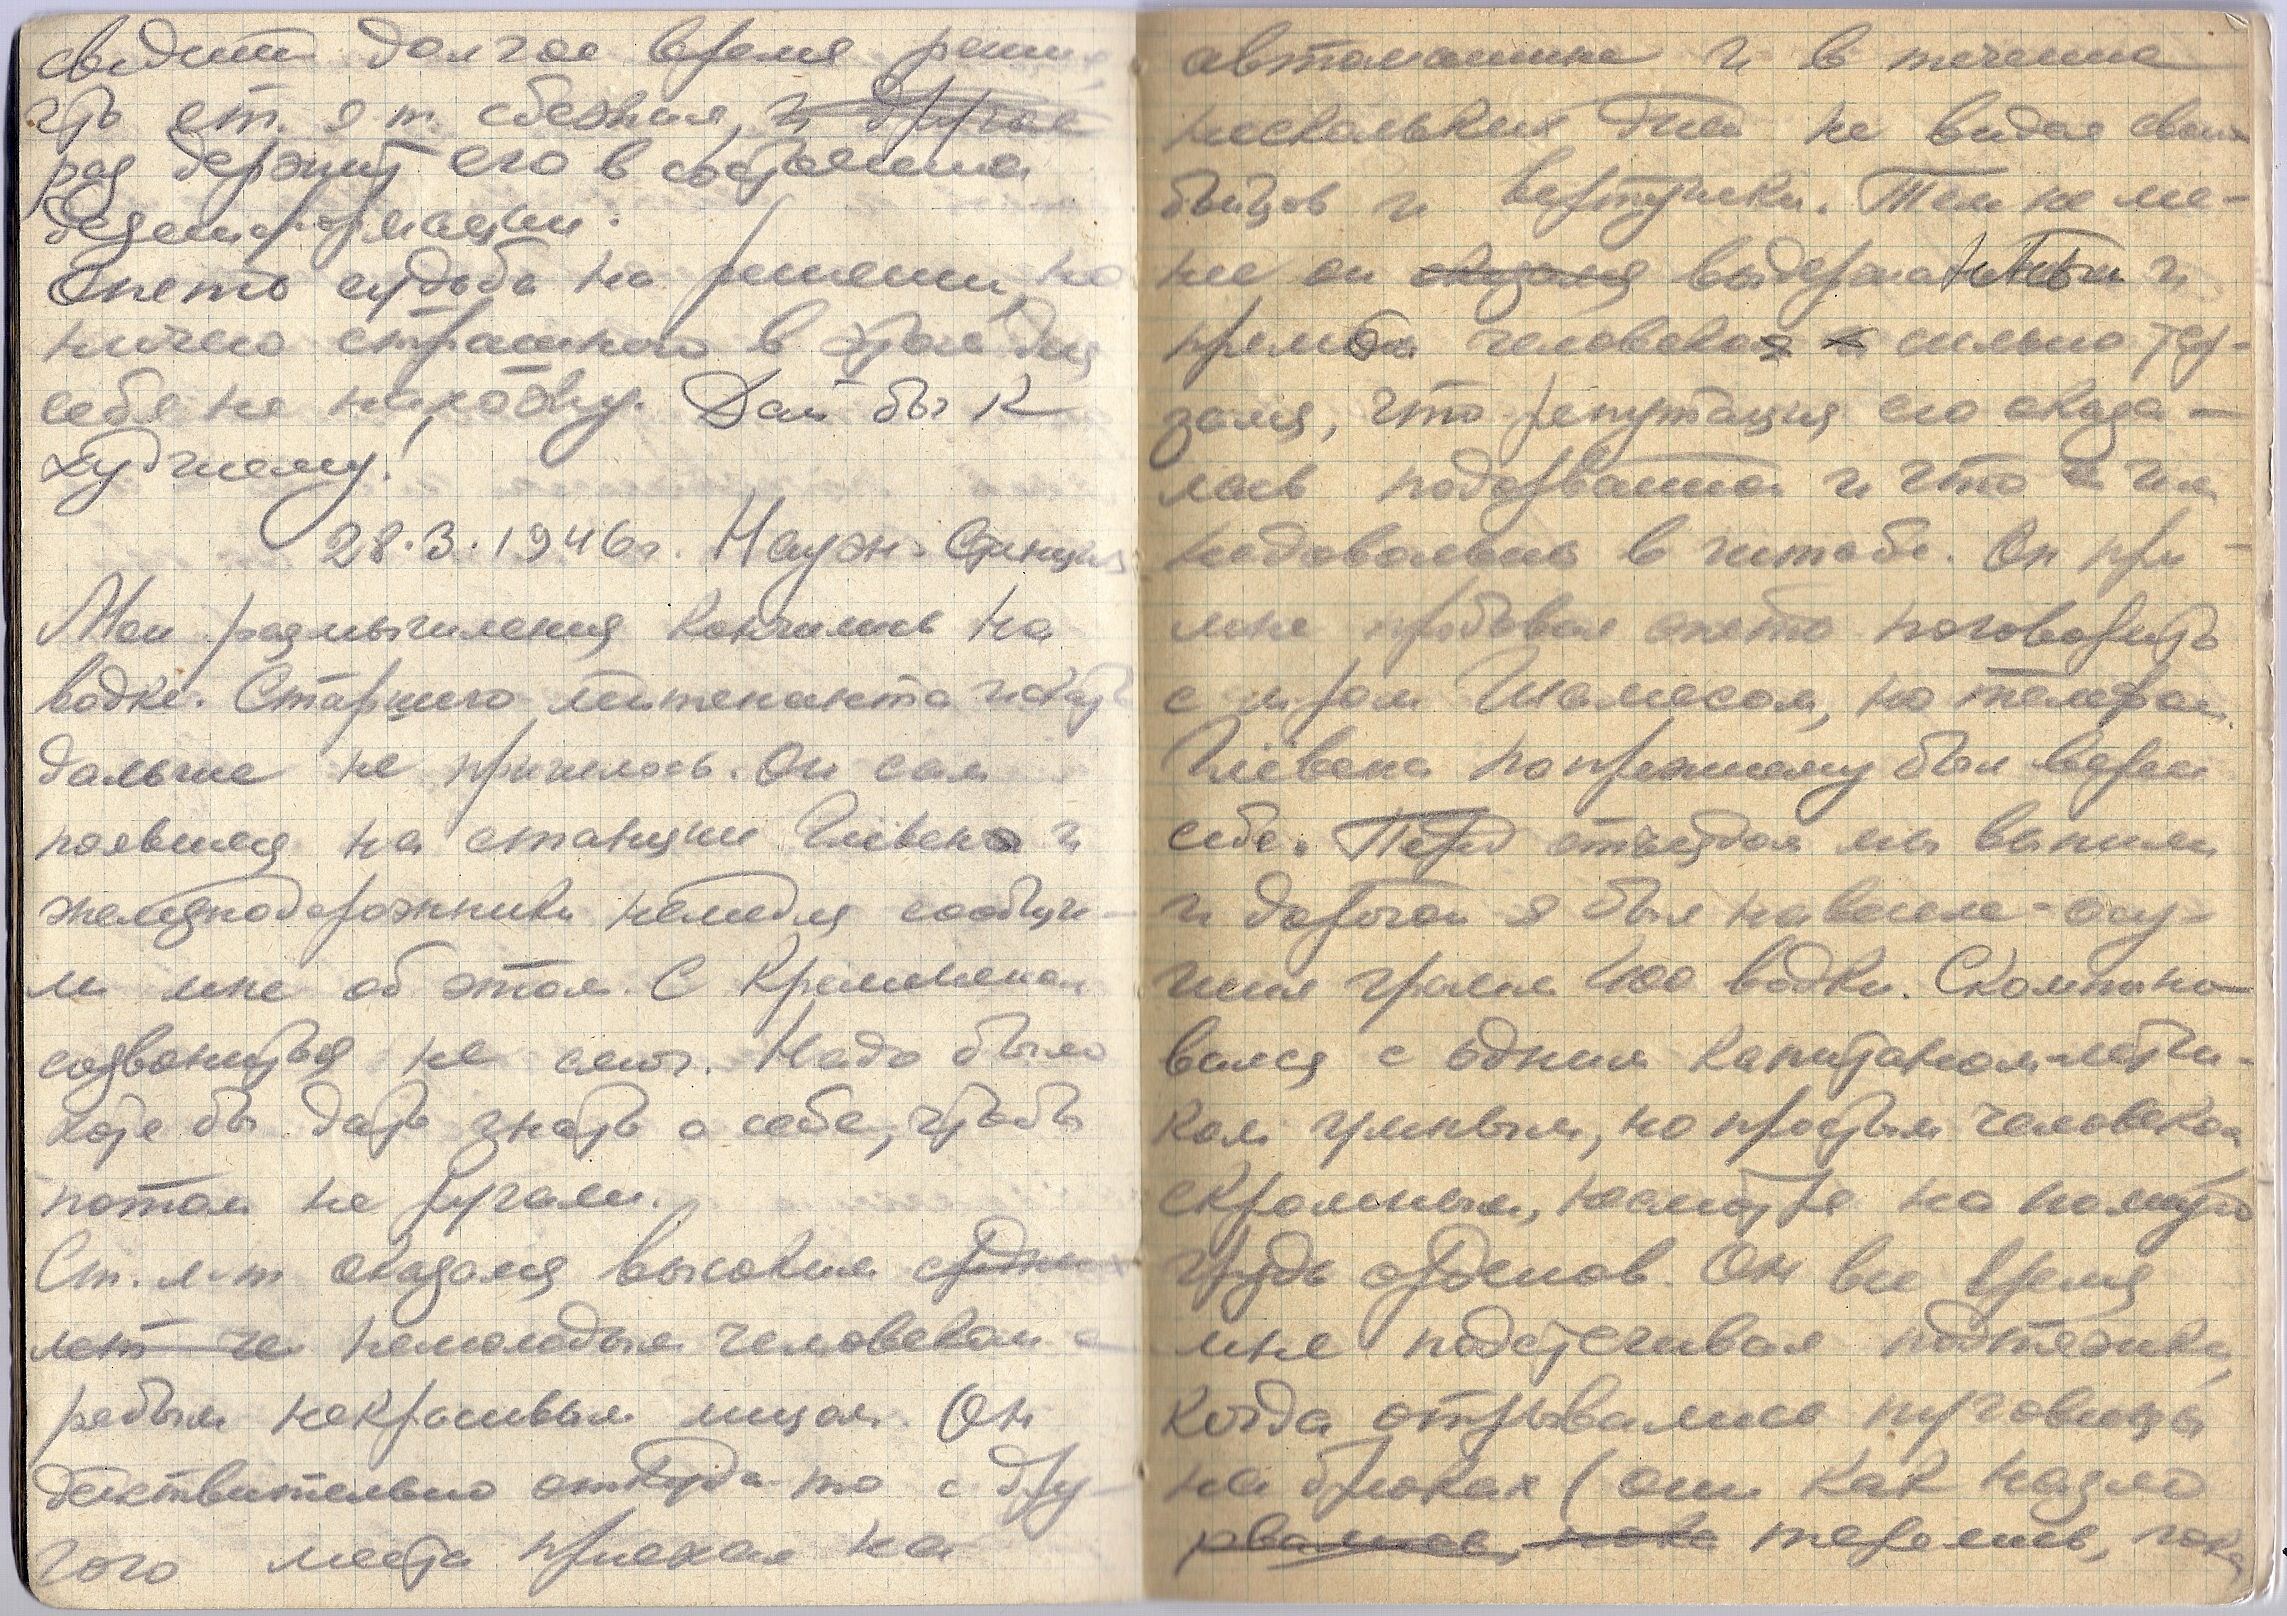 сведить долгое время решил
что ст. л-т. сбежал, и другой
раз держит его в состоянии
дезинформации.
Опять судьба на решении, но
ничего страшного в этом для
себя не нахожу. Дай бы к
худшему!
28.3.1946г. Науэн. Станция
Мои размышления кончились на
водке. Старшего лейтенанта искать
дальше не пришлось. Он сам
появился на станции Глевен и
железнодорожники немедля сообщи-
ли мне об этом. С Кремменом
созвониться не смог. Надо было
хотя бы дать знать о себе, чтобы
потом не ругали.
Ст. л-т оказался высоким средних
лет че немолодым человеком с
рябым некрасивым лицом. Он
действительно откуда-то с дру-
гого места приехал на
автомашине и в течение
нескольких дней не видал своих
бойцов и вертушки. Тем не ме-
нее он оказался выдержанный и
прямой человек сильно тер-
зался, что репутация его оказа-
лась подорванной и что им
недовольны в штабе. Он при
мне пробовал опять поговорить
с м-ром Шамесом, но телефон
Глёвена по прежнему был верен
себе. Перед отъездом мы выпили
и дорогой я был навеселе - осу-
шил грамм 400 водки. Скомпоно-
вался с одним капитаном-летчи-
ком умным, но простым человеком
скромным, несмотря на полную
грудь орденов. Он все время
мне подстегивал подтяжки,
когда отрывались пуговицы
на брюках (они как назло
рвались, пока терялись, пока